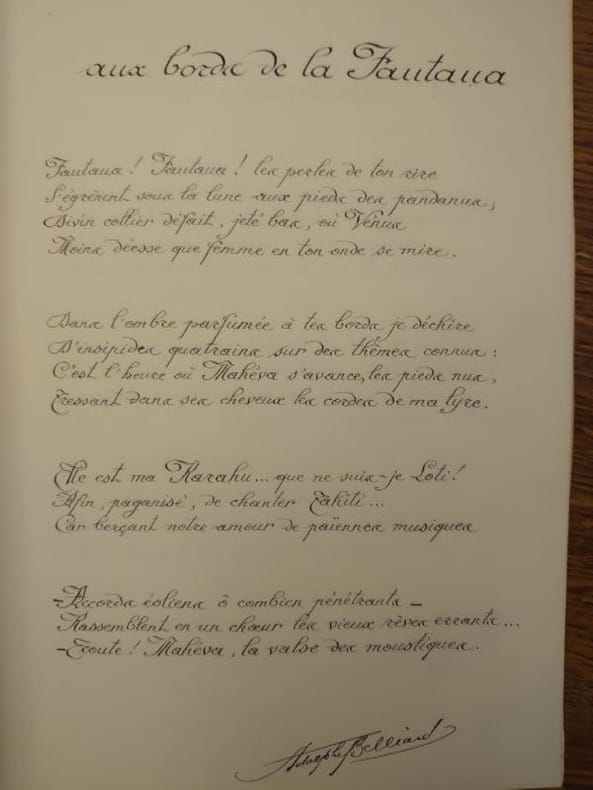 aux bords de la Fautaua
Fautaua ! Fautaua ! les perles de ton rire
S'égrènent sous la lune aux pieds des pandanus,
Divin collier défait, jeté bas, où Vénus
Moins déesse que femme en ton onde se mire.
Dans l'ombre parfumée à tes bords je déchire
D'insipides quatrains sur des thèmes connus :
C'est l'heure où Mahéva s'avance, les pieds nus,
Tressant dans ses cheveux les cordes de ma lyre.
Elle est ma Rarahu... que ne suis-je Loti !
Afin, paganisé, de chanter Tahiti...
Car berçant notre amour de païennes musiques
-Accords éoliens ô combien pénétrants -
Rassemblent en un chœur les vieux rêves errants...
-Ecoute ! Mahéva, la valse des moustiques.
Adolphe Belliard